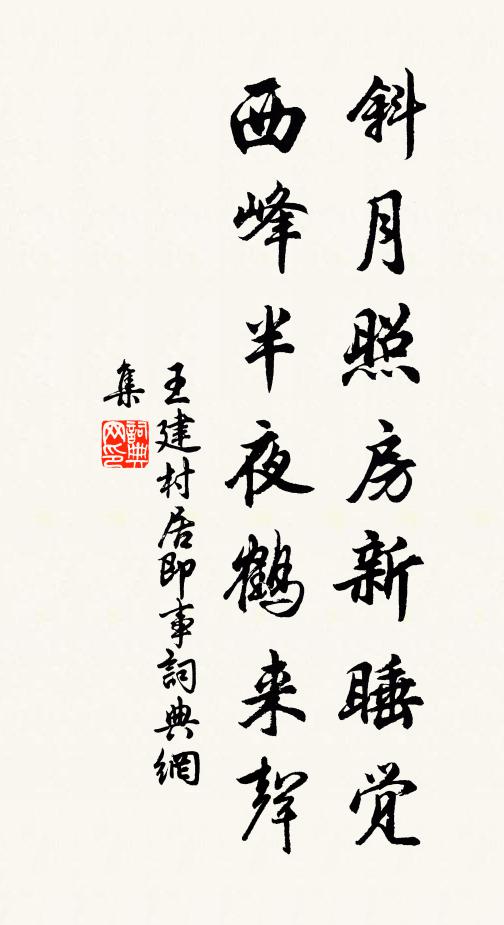 斜月照房新睡觉
西峰半夜鹤来聲
王建村居即事詞典網
集
詞典网印